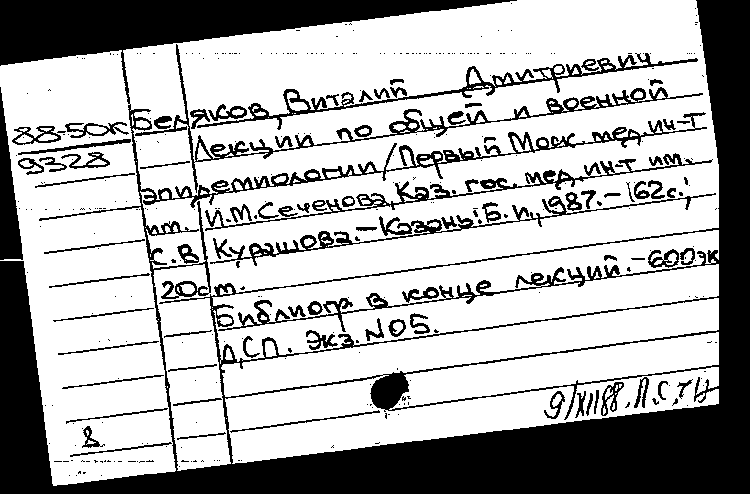 88-50к Беляков, Виталий Дмитриевич.
9328 Лекции по общей и военной
эпидемиологии/Первый Моск. мед. ин-т
им. И.М.Сеченова, Каз. гос. мед. ин-т им.
С.В. Курашова.-Казань: Б.и., 1987.- 162с.;
20см.
Библиогр в конце лекций.-600эк
ДСП. Экз.N05.
9/XII88.
8